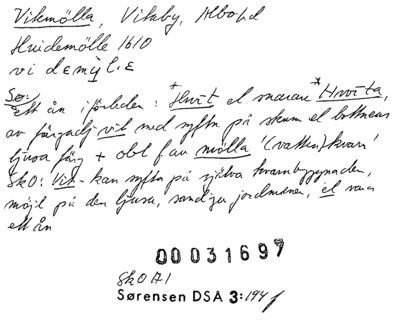 Vikmölla, Vitaby, Albo hd
Huidemölle 1610
vi demỳl.ɛ
Sø: ett ån i förleden: *Hvīt el snarare *Hvīta,
av färgadj vit med syftn på skum el bottnens
ljusa färg + obl f av mölla '(vatten)kvarn'
SkO: Vit- kan syfta på själva kvarnbyggnaden,
möjl på den ljusa, sandiga jordmånen, el vara
ett ån
00031697
SkO A1
Sørensen DSA 3:194 f